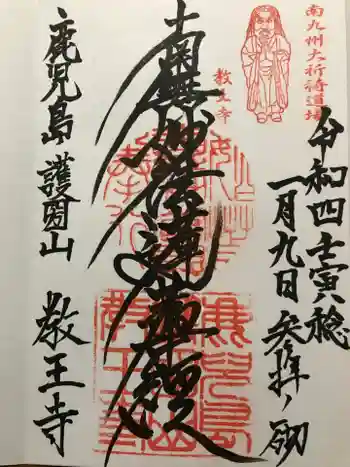 南九州大祈祷道場
教王寺
令和四壬寅稔
一月九日 参拝ノ砌
南無妙法蓮華経
鹿児島 護国山 教王寺